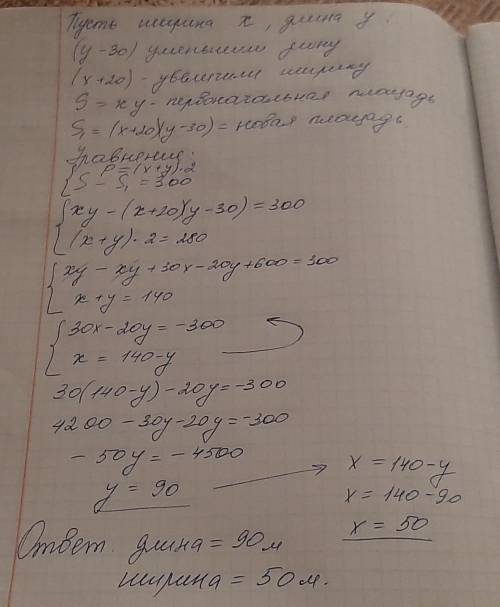 Пусть ширина x, длина y.
(y-30) уменьшили длину
(x+20) - увеличили ширину
S = xy - первоначальная площадь
S₁ = (x+20)(y-30) = новая площадь.
Уравнение:
P = (x+y)·2
S - S₁ = 300
xy - (x+20)(y-30) = 300
(x+y)·2 = 280
xy - xy + 30x - 20y + 600 = 300
x + y = 140
30x - 20y = -300
x = 140 - y
30(140-y) - 20y = -300
4200 - 30y - 20y = -300
-50y = -4500
y = 90
x = 140 - y
x = 140 - 90
x = 50
Ответ. длина = 90 м
ширина = 50 м.